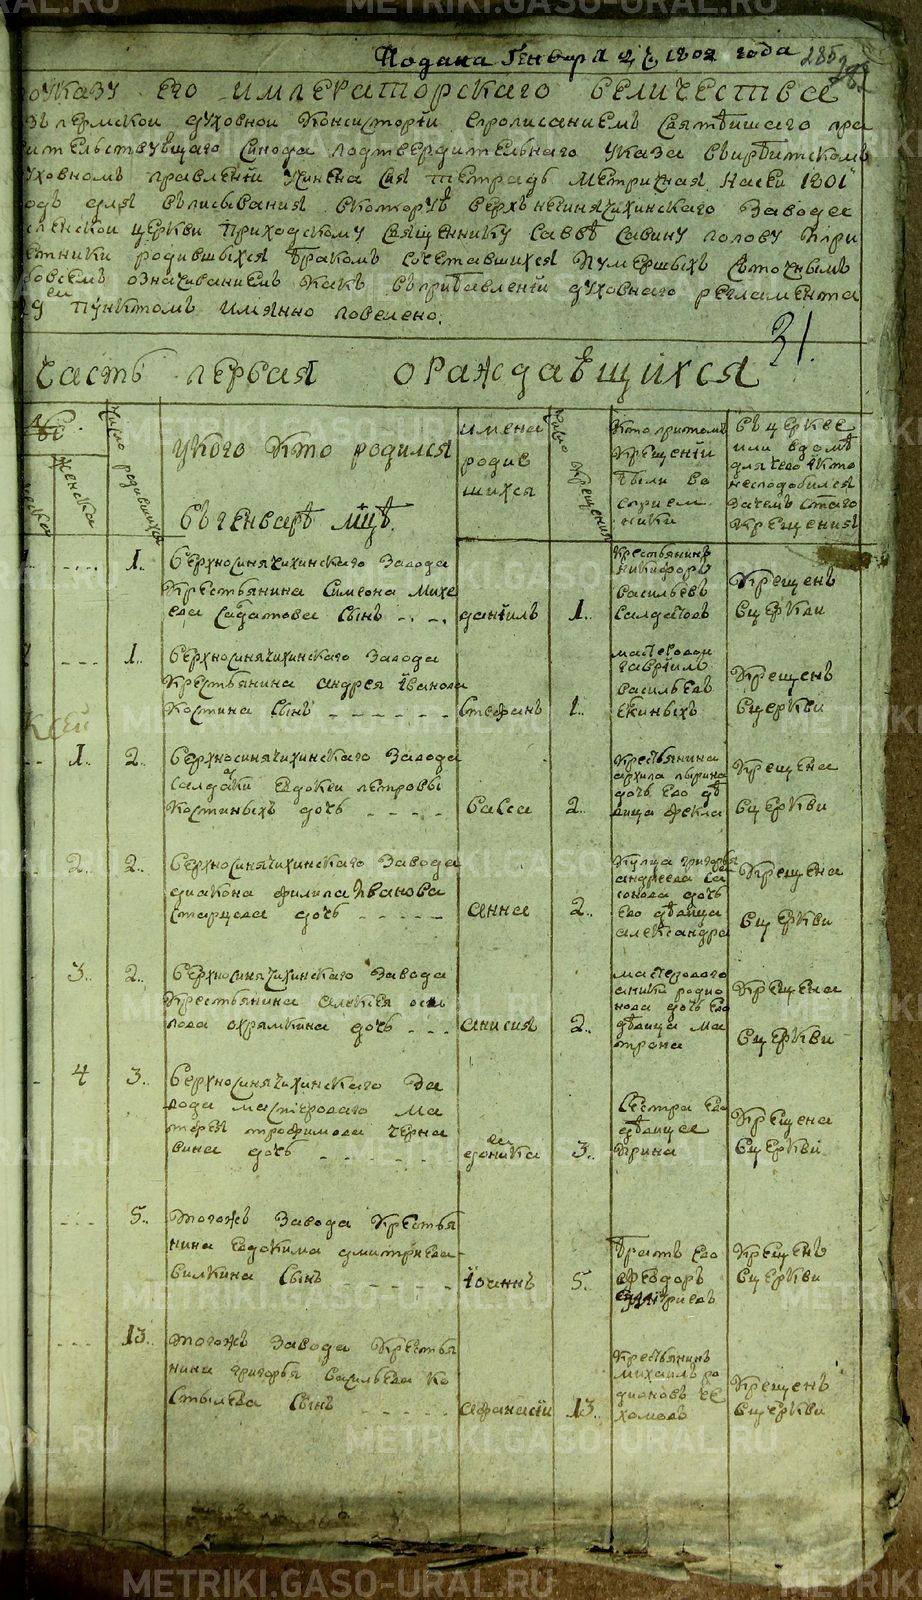 METRIKI.GASO-URAL.RU
Подана Генваря 1802 года 285
поуказу его императорскаго величества
изъ пермской духовной консисторіи спрописаніемъ святѣйшаго пра
вительствующаго синода подтвердительнаго указа въирбитскомъ
духовномъ правленіи учинена сія тетрадь метричная насеи 1801
годъ для вписыванія вкоторую верхнесинячихинскаго заводсе
спенской церкви приходскому священнику саввѣ савину попову при
четники родившыхся бракомъ сочетавшихся иумершыхъ сточнымъ
совсемъ означиваніемъ какъ въприбавленіи духовнаго регламента
29 пунктомъ имянно повелено.
31.
часть первая ораждавщихся
женска
число родившихся
укого кто родился
въ генварѣ мцѣ.
имена
родив
шихся
число крещения
кто притомъ
крещеніи
были во
сприем
ники
въ церкве
или вдомѣ
для чего икто
несподобился
зачемъ стаго
крещения
1.. верхносинячихинскаго завода
крестьянина симеона михе
ева садатова сынъ данiилъ 1..
крестьянинъ
никифоръ
васильевъ
салдатовъ
крещенъ
вцеркви
1.. верхносинячихинскаго завода
крестьянина андрея иванова
костина сынъ стефанъ 1..
мастеровои
гавріилъ
васильевъ
екиныхъ
крещенъ
вцеркви
1.. 2.. верхносинячихинскаго завода
салдатки евдокеи петровы
костиныхъ дочь васса 2..
крестьянина
архипа
дочь ево дѣ
вица фекла
крещена
вцеркви
2.. 2.. верхносинячихинскаго завода
диакона филипа иванова
старцова дочь анна 2..
купца григорья
андреева са
понова дочь
ево дѣвица
александра
крещена
вцеркви
3.. 2.. верхносинячихинскаго завода
крестьянина алексея оси
пова охрямкина дочь анисия 2..
мастероваго
аники родио
нова дочь ево
дѣвица ма
трона
крещена
вцеркви
4 3.. верхносинячихинскаго за
вода мастероваго ма
тфея трофимова черна
вина дочь доминика 3..
сестра ево
дѣвица
ирина
крещена
вцеркви
5.. тогожъ завода крестья
нина евдокима дмитриева
вилкина сынъ іоаннъ 5..
братъ ево
феодоръ
дмитриевъ
крещенъ
вцеркви
13.. тогожъ завода крестья
нина григорья васильева ко
стылева сынъ афанасіи 13..
крестьянинъ
михаилъ ро
дионовъ че
хомовъ
крещенъ
вцеркви
METRIKI.GASO-URAL.RU